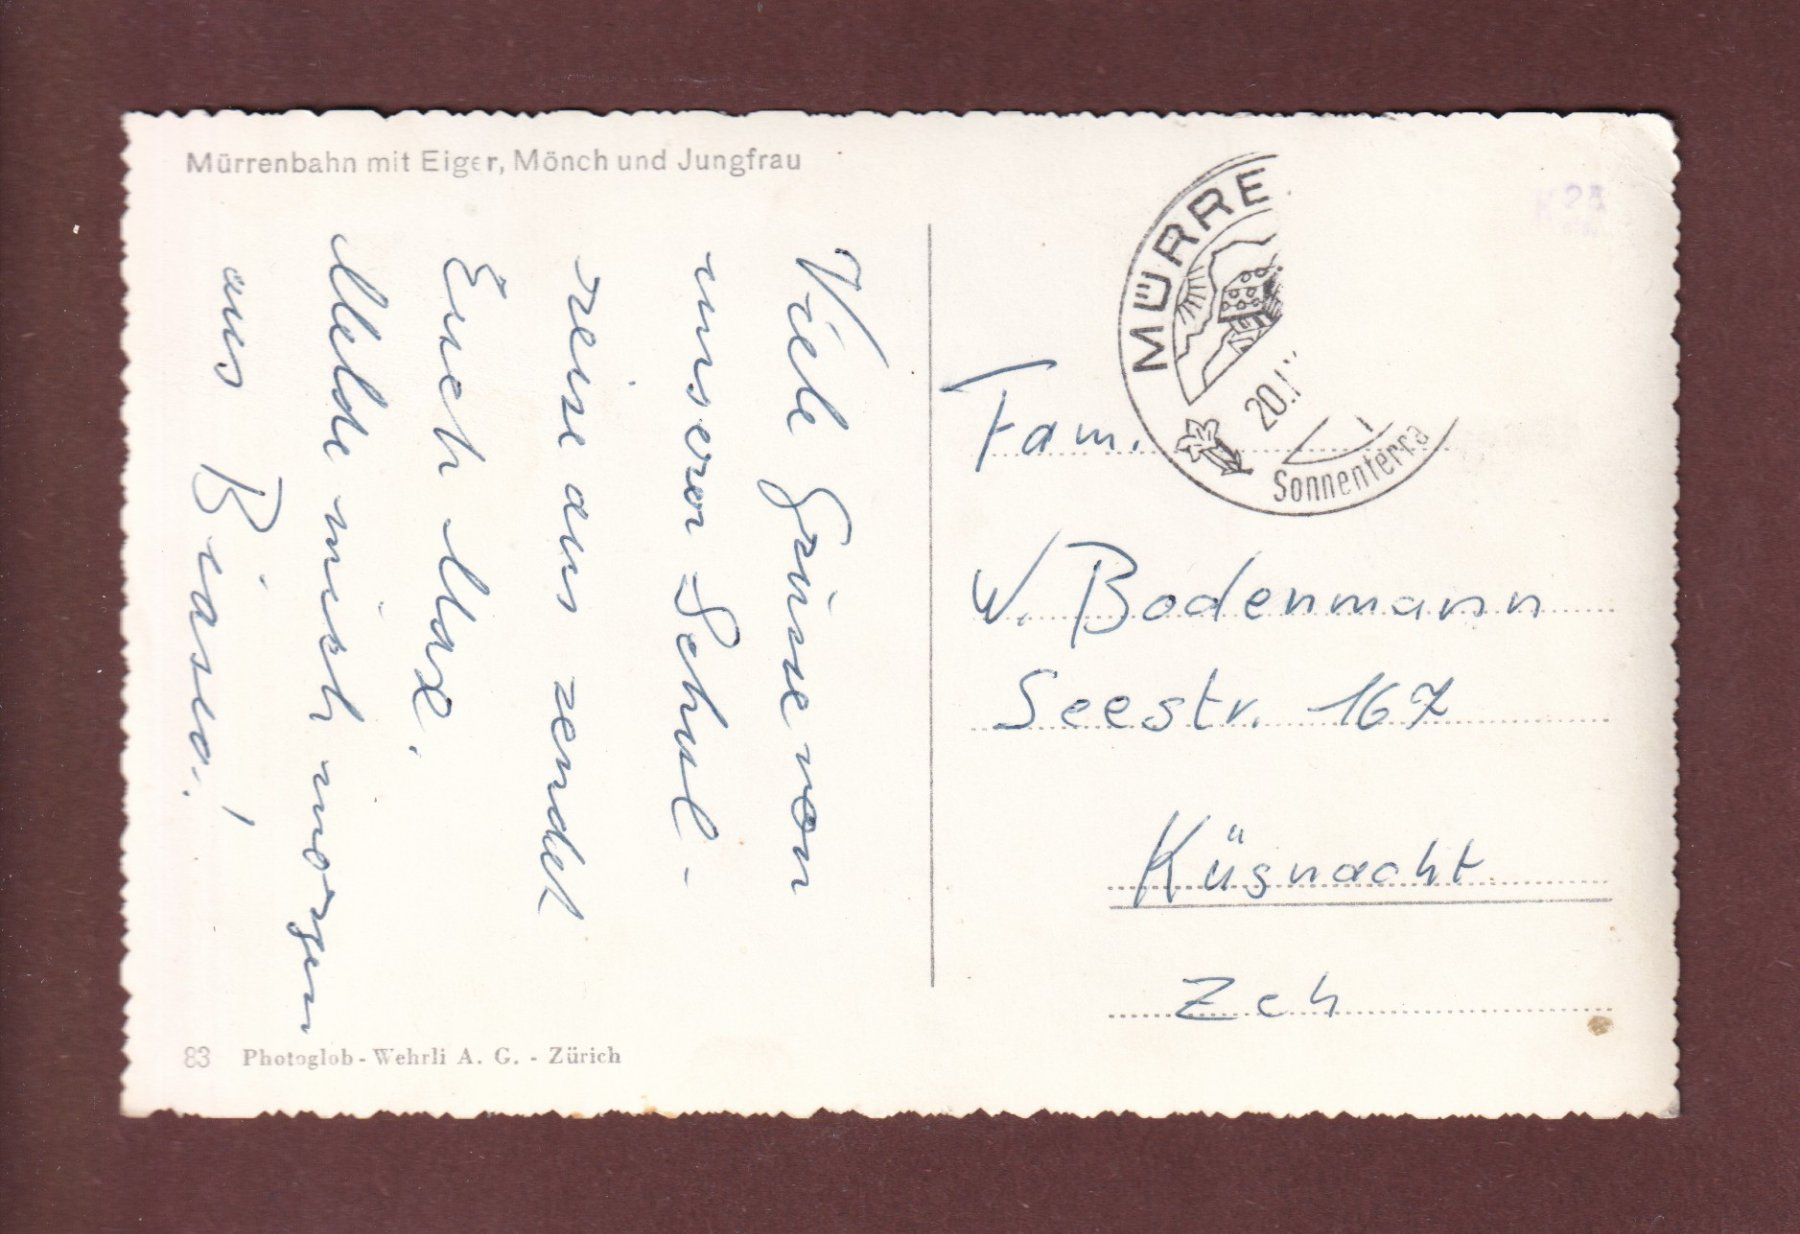 Mürrenbahn mit Eiger, Mönch und Jungfrau
Viele Grüsse von
unserer Schul-
reise aus sendet
Euch Max.
Melde mich morgen
aus Biasca!
83 Photoglob - Wehrli A. G. - Zürich
MÜRRE
20.
Sonnenterra
Fam.
W. Bodenmann
Seestr. 167
Küsnacht
Zch